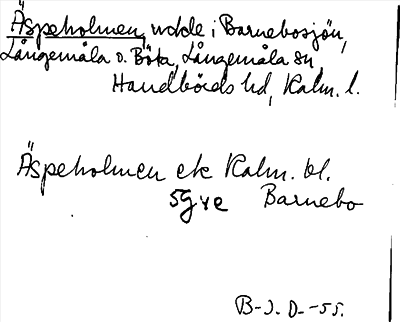 Äspeholmen, udde i Barnebosjön,
Långemåla o. Böta, Långemåla sn,
Handbörds hd, Kalm. l.
Äspeholmen ek Kalm. bl.
5g ve Barnebo
B-J. D. -55.